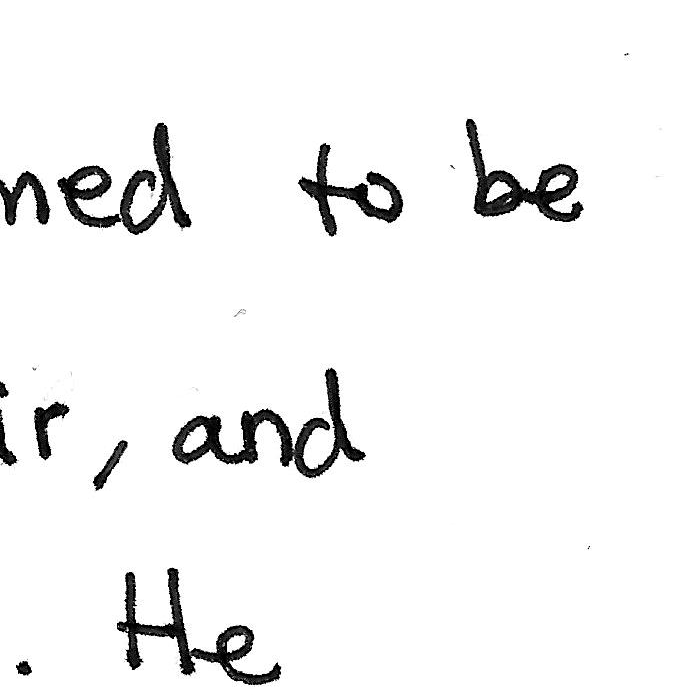 ned to be
ir, and
. He